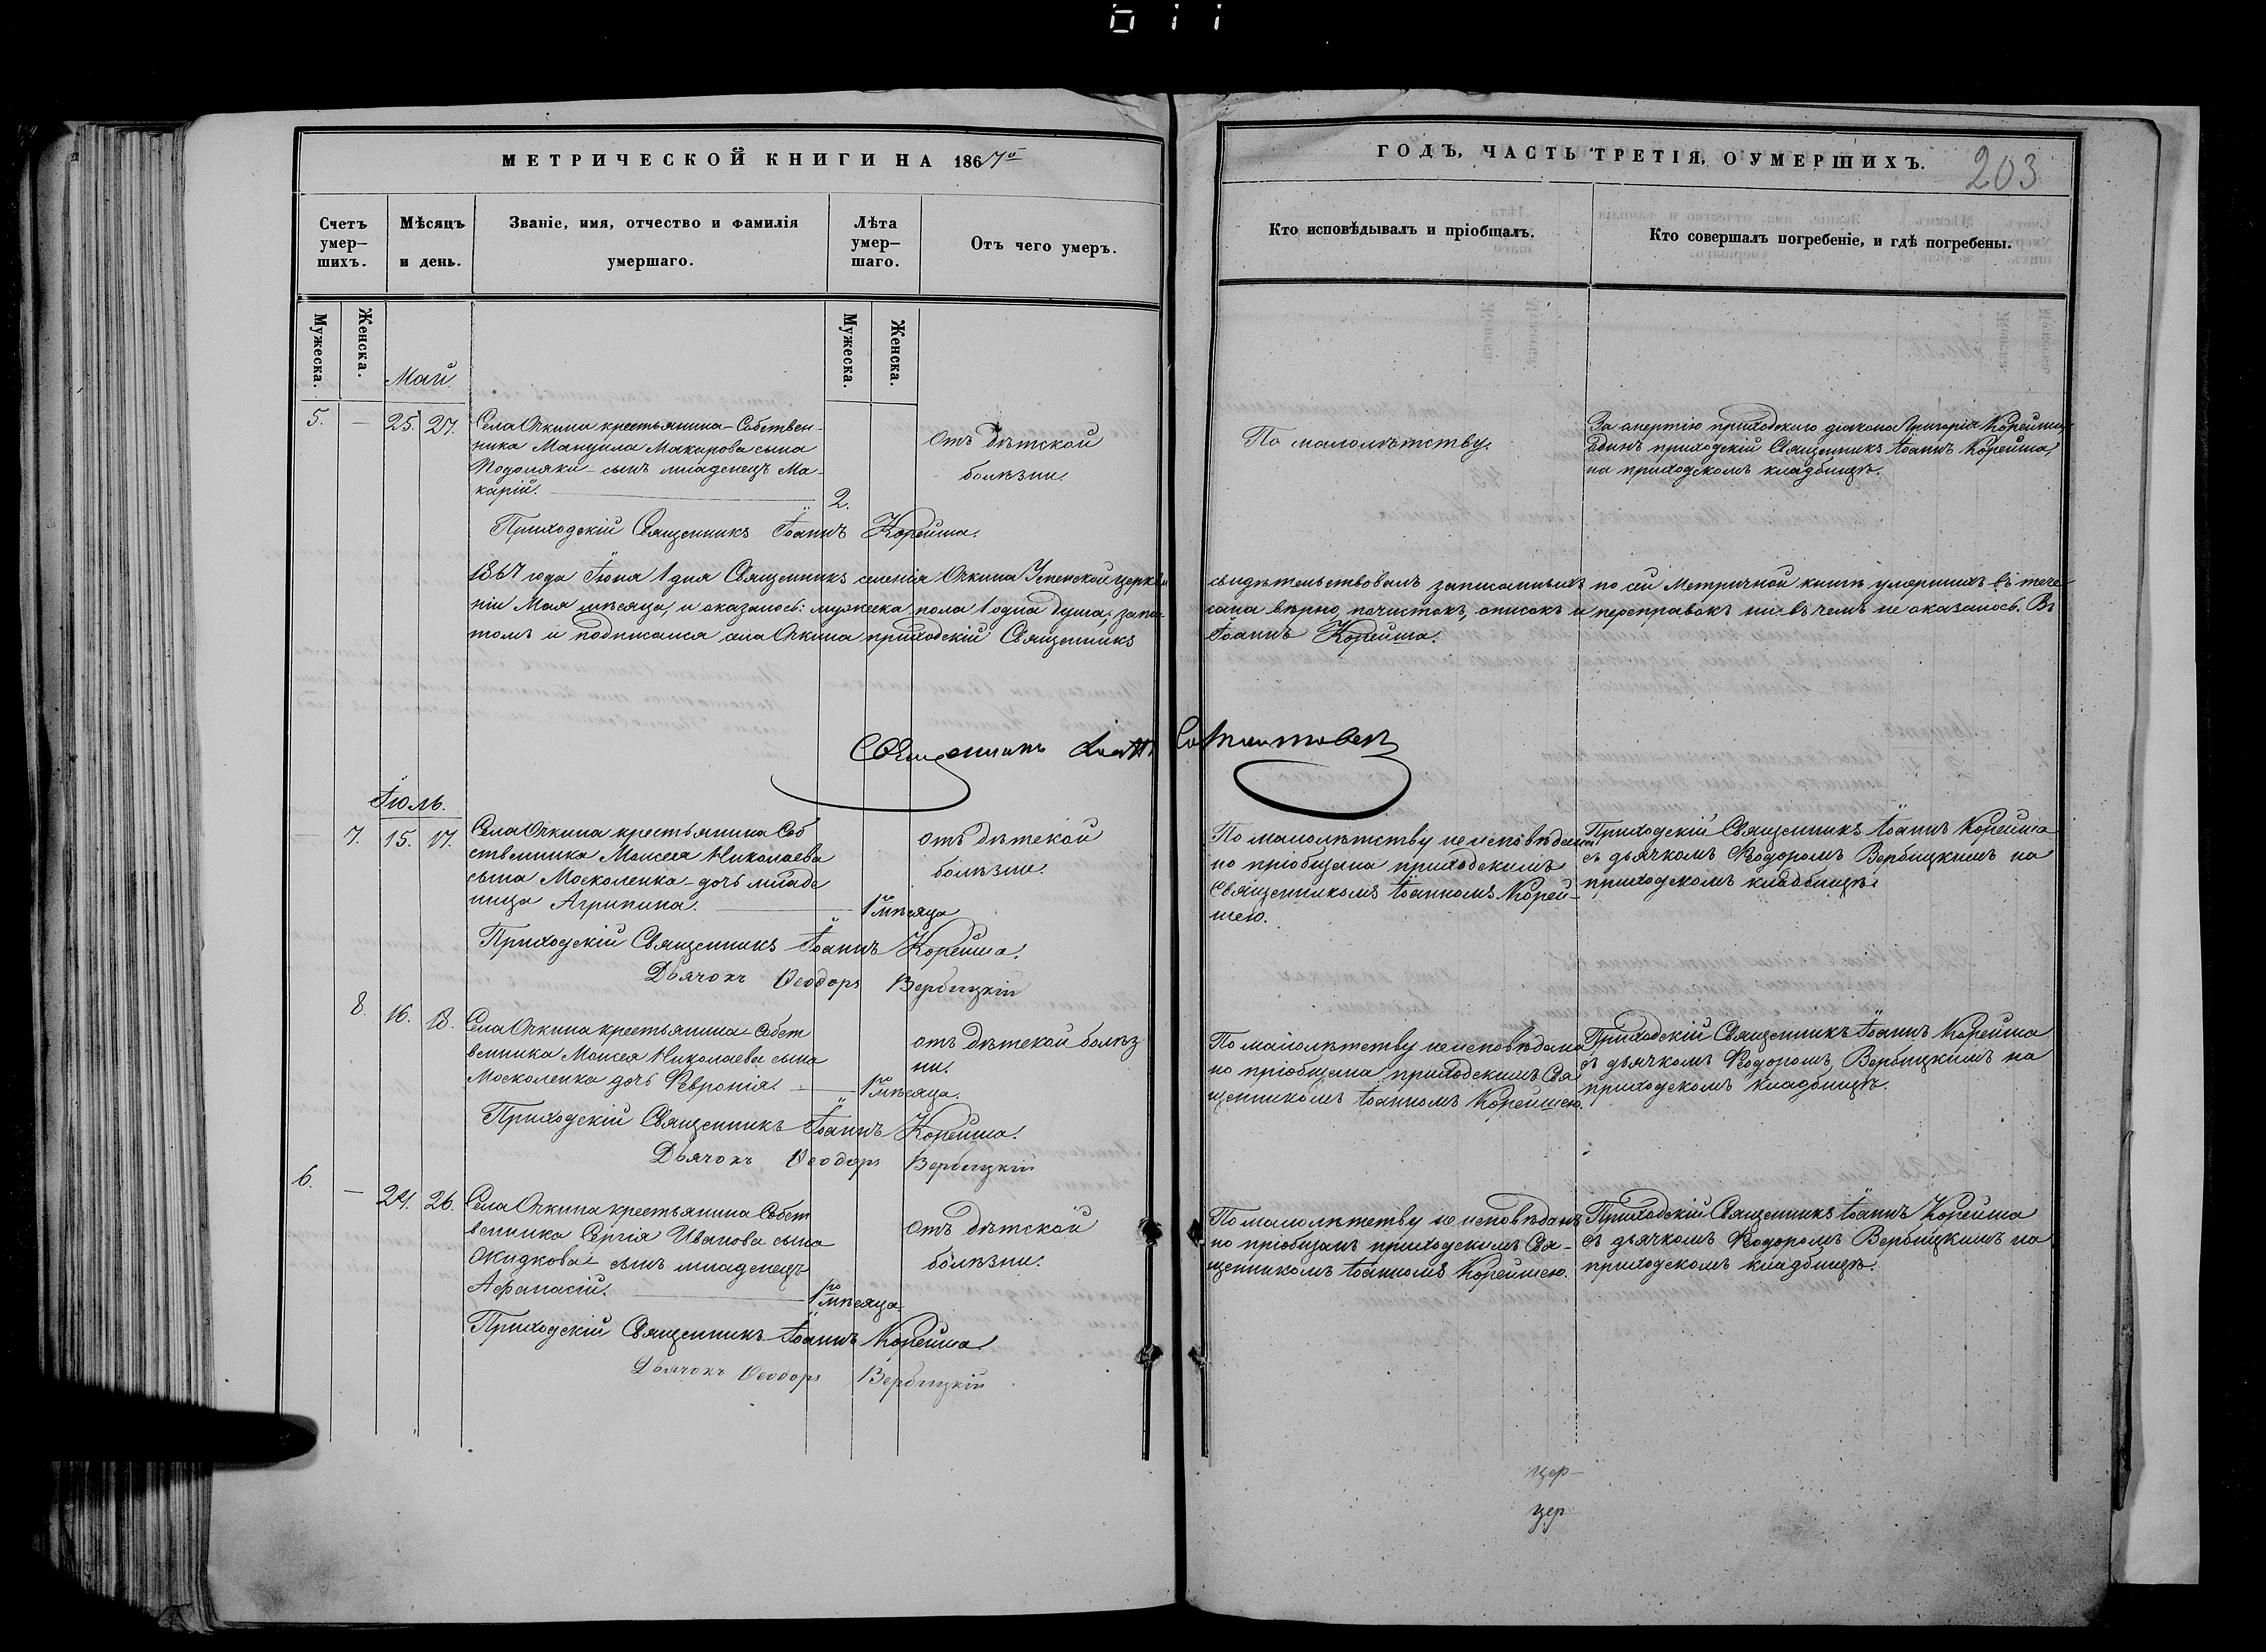 МЕТРИЧЕСКОЙ КНИГИ НА 1867й
ГОДЪ, ЧАСТЬ ТРЕТІЯ, О УМЕРШИХЪ.
203
Счетъ умер-шихъ.
Мѣсяцъ и день.
Званіе, имя, отчество и фамилія умершаго.
Лѣта умер-шаго.
Отъ чего умеръ.
Кто исповѣдывалъ и пріобщалъ.
Кто совершалъ погребеніе, и гдѣ погребены.
Мужеска.
Женска.
Мужеска.
Женска.
Май.
5. — 25. 27.
Села Очкина крестьянина-Собствен-
ника Мануила Макарова сына
Подоляки-сынъ младенецъ Ма-
карій.
2.
Отъ дѣтской
болѣзни.
По малолѣтству.
За смертію приходского діакона Григорія Корейши
одинъ приходскій Священникъ Іоаннъ Корейша,
на приходскомъ кладбищѣ.
Приходскій Священникъ Іоаннъ Корейша.
1867 года Іюня 1 дня Священникъ селенія Очкина Успенской церкви свидѣтельствовалъ записанныхъ по сей Метричной книгѣ умершихъ въ тече-
ніи Мая мѣсяца, и оказалось: мужеска пола 1 одна душа; запи-сана вѣрно, почистокъ, описокъ и переправокъ ни въ чемъ не оказалось. Въ
томъ и подписался села Очкина приходскій Священникъ Іоаннъ Корейша.
Священникъ
Іюль.
— 7. 15. 17.
Села Очкина крестьянина Соб
ственника Моисея Николаева
сына Москаленка-дочь младе
ница Агрипина.
1го мѣсяца
отъ дѣтской
болѣзни.
По малолѣтству не исповѣдана
но пріобщена приходскимъ
Священникомъ Іоанномъ Корей-
шею.
Приходскій Священникъ Іоаннъ Корейша
съ дьячкомъ Ѳеодоромъ Вербицкимъ на
приходскомъ кладбищѣ.
Приходскій Священникъ Іоаннъ Корейша.
Дьячокъ Ѳеодоръ Вербицкій
8. 16. 18.
Села Очкина крестьянина-Собст
венника Моисея Николаева сына
Москаленка дочь Февронія.
1го мѣсяца.
отъ дѣтской болѣз
ни.
По малолѣтству не исповѣдана
но пріобщена приходскимъ Свя
щенникомъ Іоанномъ Корейшею.
Приходскій Священникъ Іоаннъ Корейша
съ дьячкомъ Ѳеодоромъ Вербицкимъ на
приходскомъ кладбищѣ.
Приходскій Священникъ Іоаннъ Корейша.
Дьячокъ Ѳеодоръ Вербицкій
6. — 24. 26.
Села Очкина крестьянина Собст
венника Сергія Иванова сына
Жидкова-сынъ младенецъ
Афанасій.
1го мѣсяца.
отъ дѣтской
болѣзни.
По малолѣтству не исповѣданъ
но пріобщенъ приходскимъ Свя-
щенникомъ Іоанномъ Корейшею.
Приходскій Священникъ Іоаннъ Корейша
съ дьячкомъ Ѳеодоромъ Вербицкимъ на
приходскомъ кладбищѣ.
Приходскій Священникъ Іоаннъ Корейша
Дьячокъ Ѳеодоръ Вербицкій
цер-
цер